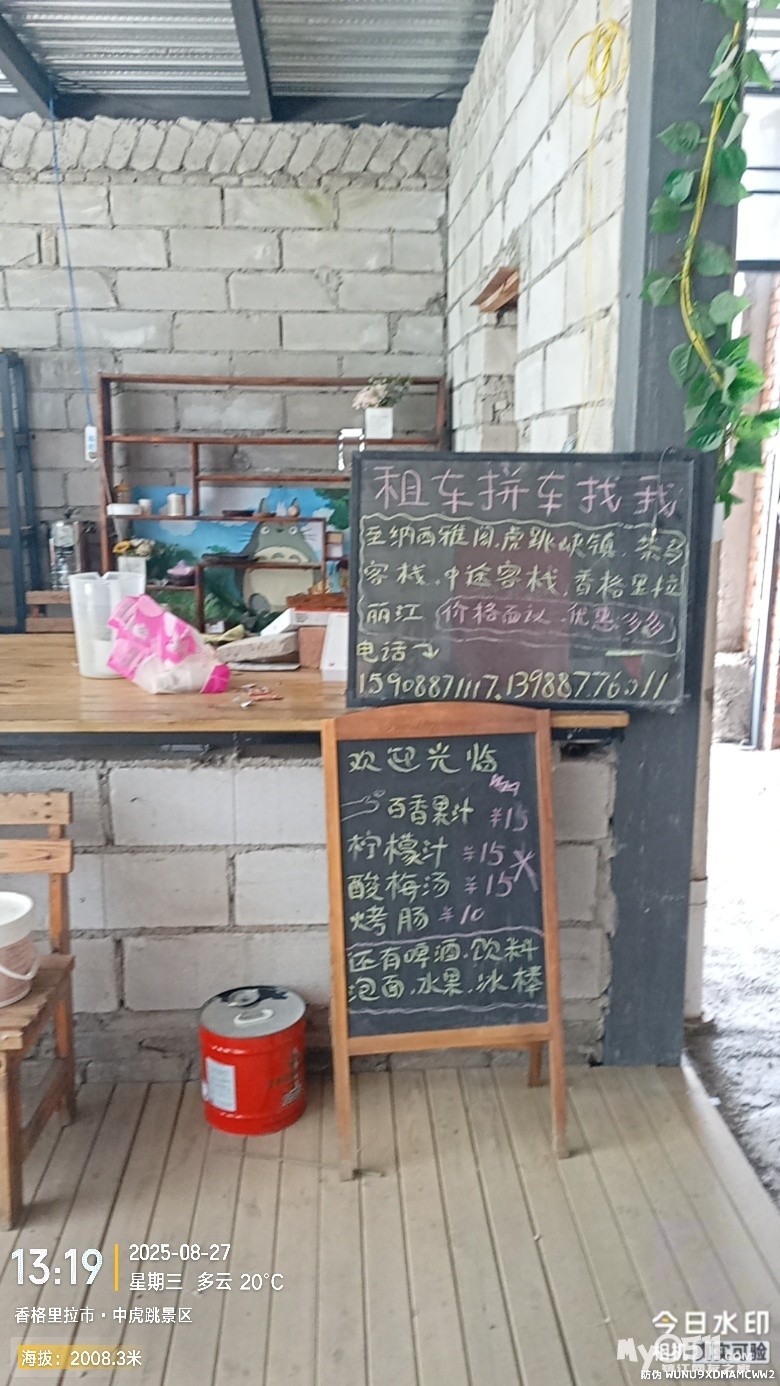 租车拼车找我
至纳西雅阁.虎跳峡镇.茶马
客栈.中途客栈.香格里拉
丽江 价格面议.优惠多多
电话
15908871117.13988776311
欢迎光临
百香果汁 ¥15
柠檬汁 ¥15
酸梅汤 ¥15
烤肠 ¥10
还有啤酒.饮料
泡面.水果.冰棒
13:19
2025-08-27
星期三 多云 20℃
香格里拉市·中虎跳景区
海拔：2008.3米
今日水印
防伪 WUNU9XDMAMCWW2